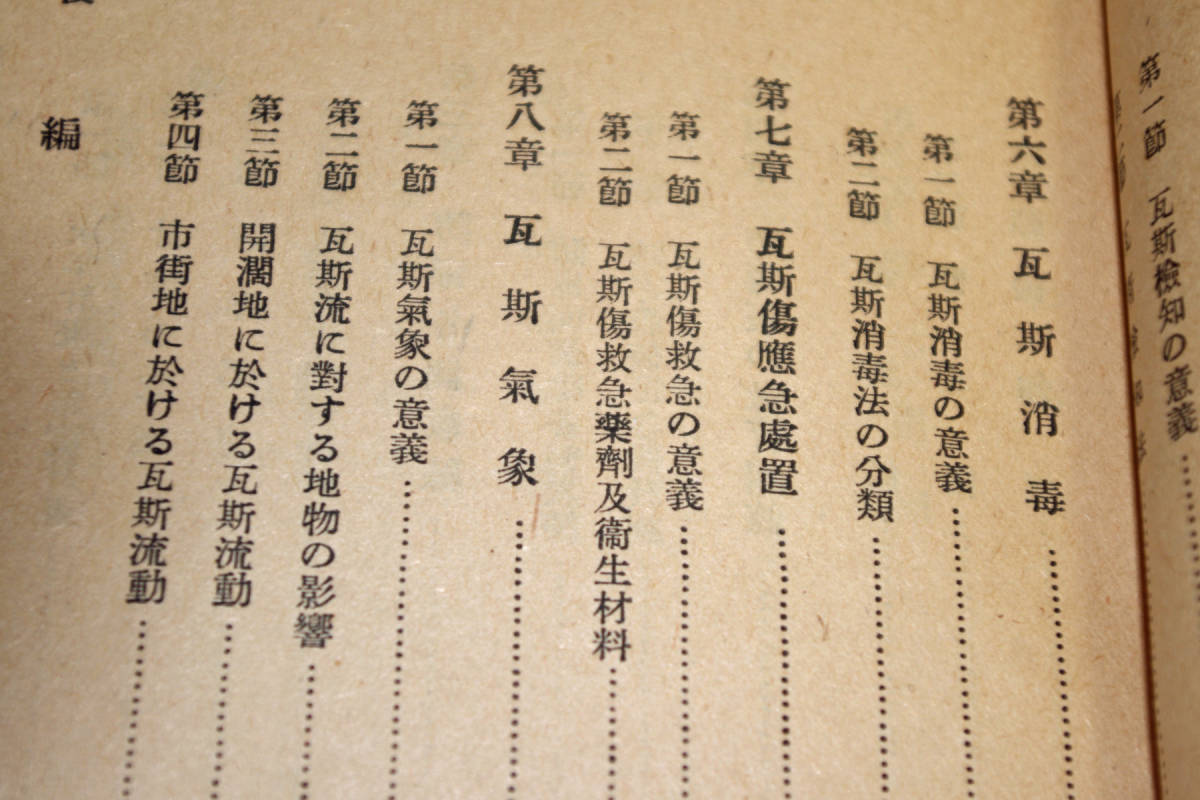 第一節　瓦斯檢知の意義
第六章　瓦斯消毒
第一節　瓦斯消毒の意義
第二節　瓦斯消毒法の分類
第七章　瓦斯傷應急處置
第一節　瓦斯傷救急の意義
第二節　瓦斯傷救急藥劑及衞生材料
第八章　瓦斯氣象
第一節　瓦斯氣象の意義
第二節　瓦斯流に對する地物の影響
第三節　開濶地に於ける瓦斯流動
第四節　市街地に於ける瓦斯流動
編